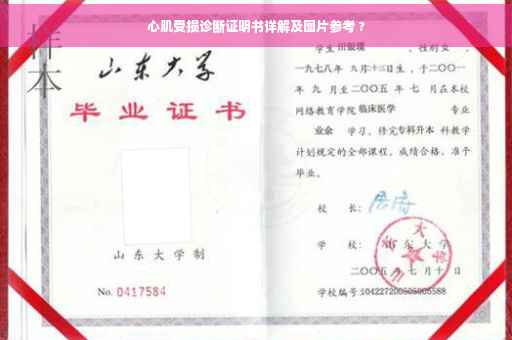 心肌受损诊断证明书详解及图片参考？
样本
山东大学
毕业证书
山东大学制
No. 0417584
学生
性别女，
一九七八年 九月十三日生，于二〇〇二
年 九 月至二〇〇五 年 七 月在本校
网络教育学院 临床医学 专业
业余 学习，修完专科升本 科教学
计划规定的全部课程，成绩合格，准予
毕业。
校 长：
学 校：山东大学
二〇〇五 年 七 月 十 日
学校编号: